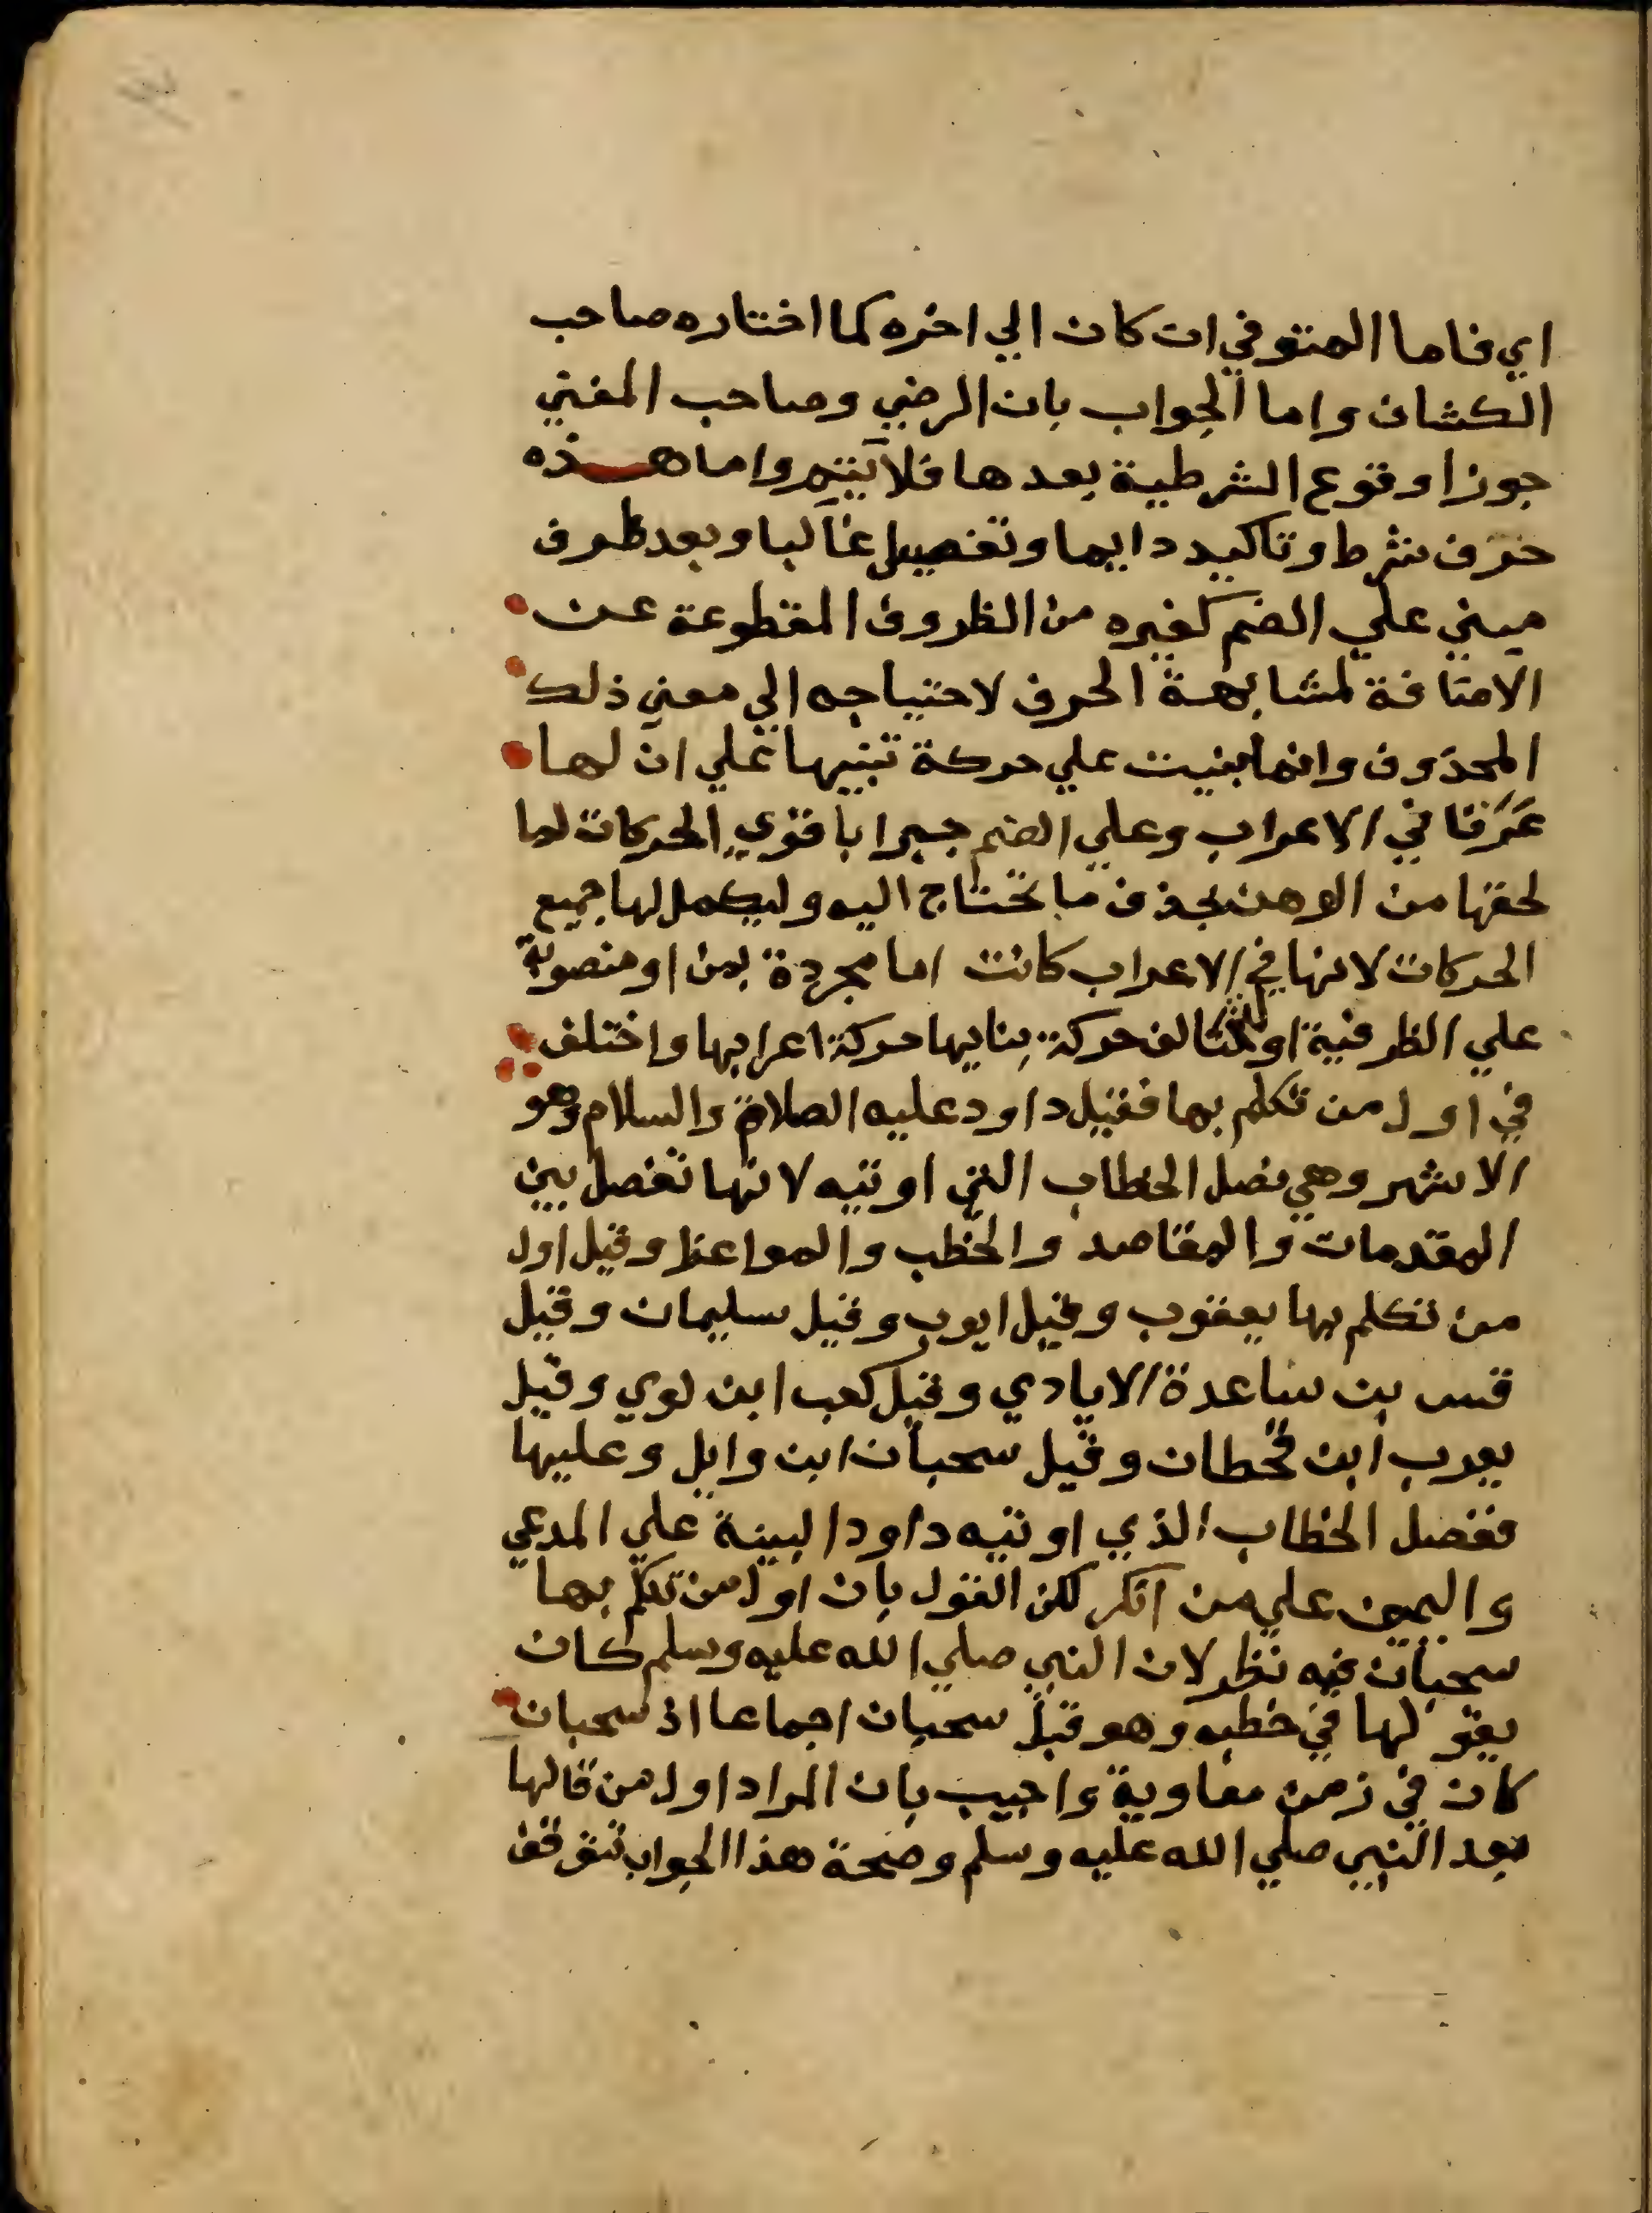 اي فاما المتوفي ان كان الي اخره كما اختاره صاحب
الكشاف واما الجواب بان الرضي وصاحب المغني
جوزا وقوع الشرطية بعدها فلا يتم واما هذه
حرف شرط وتاكيد دايما وتفصيل غالبا وبعد ظرف
مبني علي الضم كغيره من الظروف المقطوعة عن
الاضافة لمشابهة الحرف لاحتياجه الي معني ذلك
المحذوف وانما بنيت علي حركة تنبيها علي ان لها
عرقا في الاعراب وعلي الضم جبرا باقوي الحركات لما
لحقها من الوهن بحذف ما تحتاج اليه وليكمل لها جميع
الحركات لانها في الاعراب كانت اما مجردة بمن او منصوبة
علي الظرفية او لتخالف حركة بنايها حركة اعرابها واختلف
في اول من تكلم بها فقيل داود عليه الصلاة والسلام وهو
الاشهر وهي فصل الخطاب التي اوتيه لانها تفصل بين
المقدمات والمقاصد والخطب والمواعظ وقيل اول
من تكلم بها يعقوب وقيل ايوب وقيل سليمان وقيل
قس بن ساعدة الايادي وقيل كعب ابن لوي وقيل
يعرب ابن قحطان وقيل سحبان ابن وايل وعليها
ففصل الخطاب الذي اوتيه داود البينة علي المدعي
واليمين علي من انكر لكن القول بان اول من تكلم بها
سحبان فيه نظر لان النبي صلي الله عليه وسلم كان
يقولها في خطبه وهو قبل سحبان اجماعا اذ سحبان
كان في زمن معاوية واجيب بان المراد اول من قالها
بعد النبي صلي الله عليه وسلم وصحة هذا الجواب تتوقف